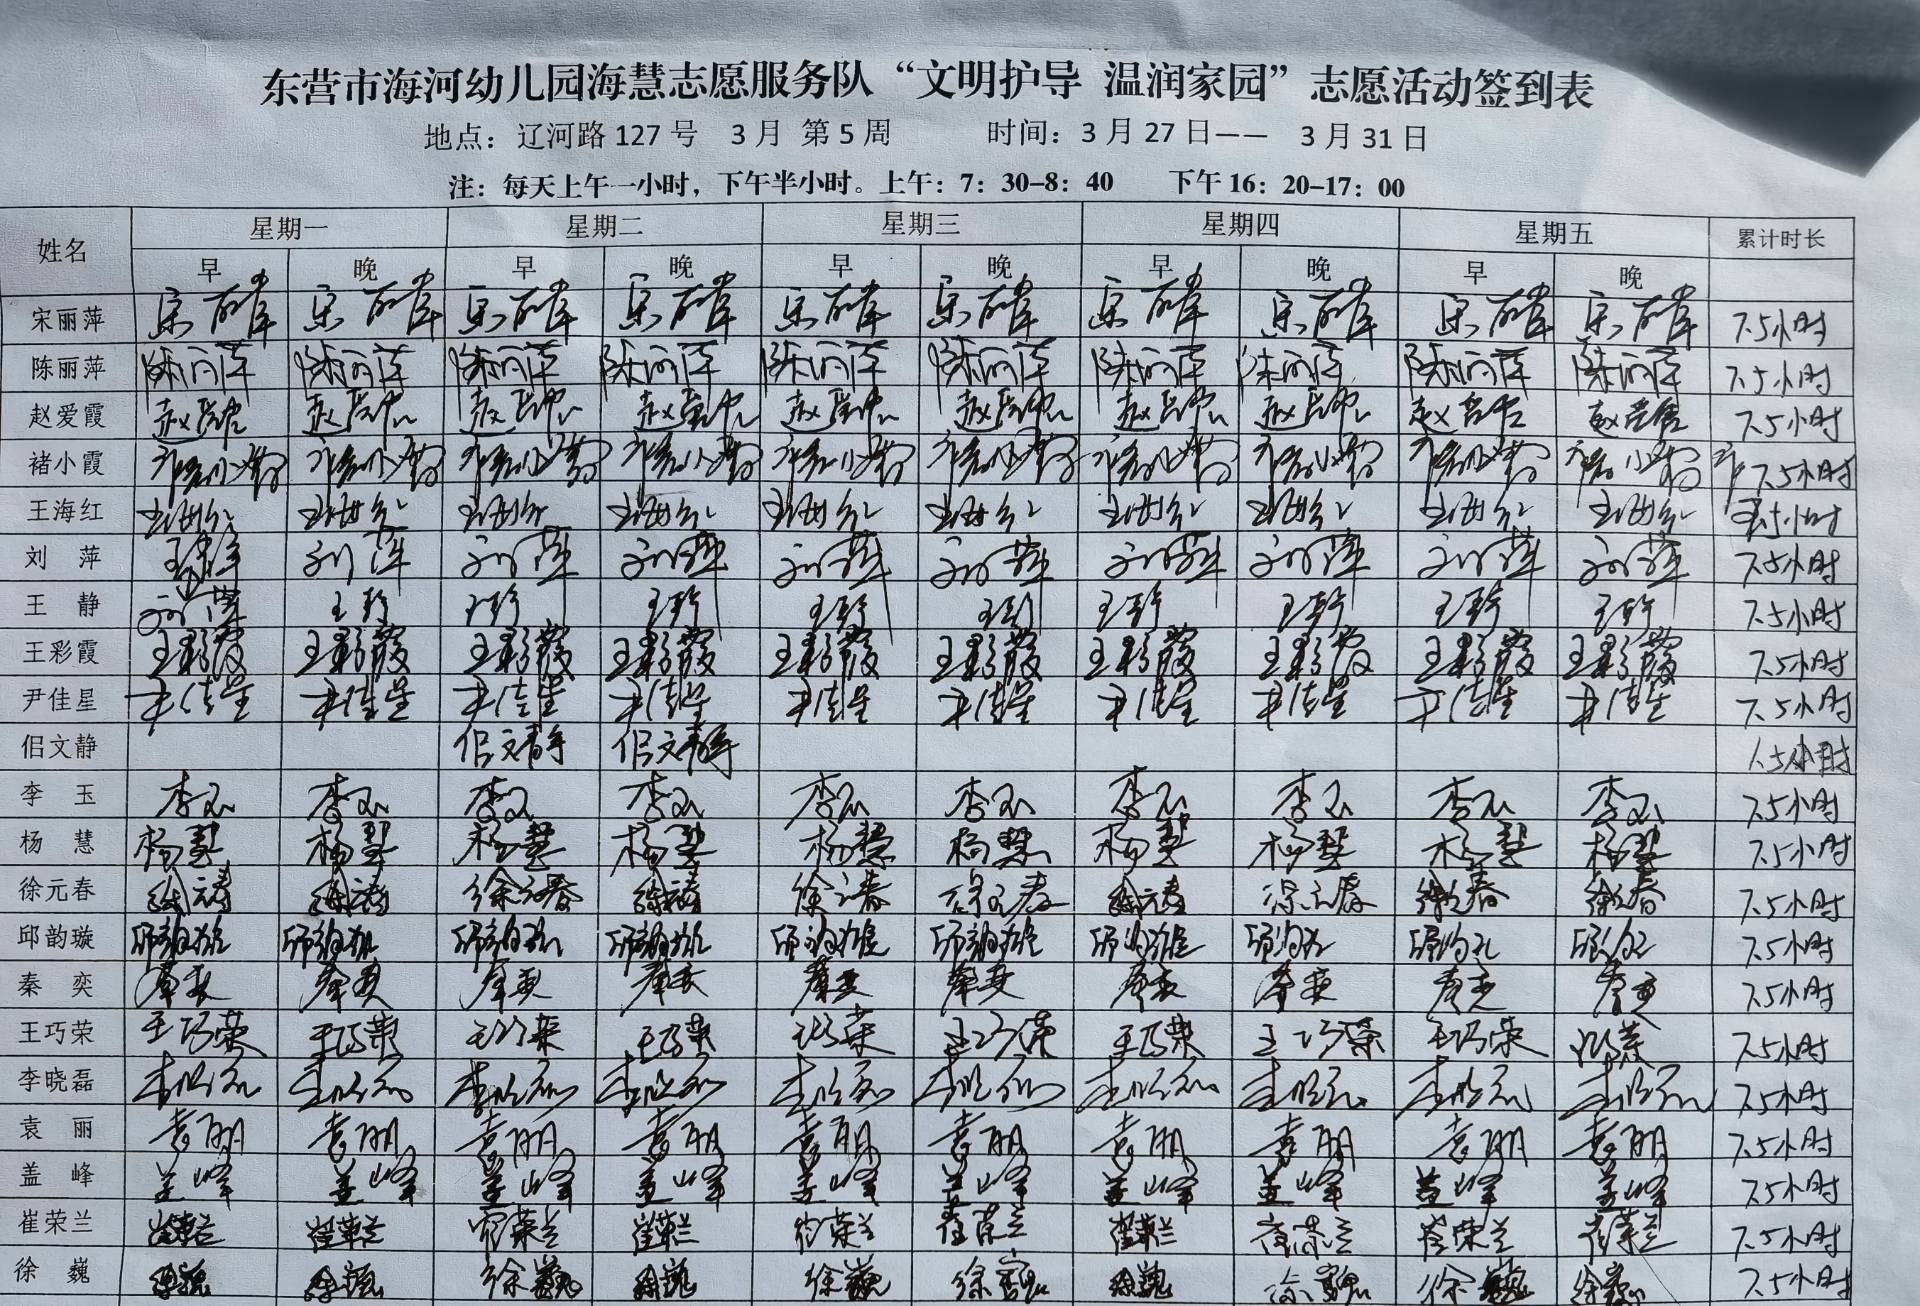 东营市海河幼儿园海慧志愿服务队“文明护导 温润家园”志愿活动签到表
地点：辽河路 127 号 3 月 第 5 周 时间：3 月 27 日—— 3 月 31 日
注：每天上午一小时，下午半小时。上午：7：30-8：40 下午 16：20-17：00
姓名 星期一 星期二 星期三 星期四 星期五 累计时长
早 晚 早 晚 早 晚 早 晚 早 晚
宋丽萍 宋丽萍 宋丽萍 宋丽萍 宋丽萍 宋丽萍 宋丽萍 宋丽萍 宋丽萍 宋丽萍 宋丽萍 7.5小时
陈丽萍 陈丽萍 陈丽萍 陈丽萍 陈丽萍 陈丽萍 陈丽萍 陈丽萍 陈丽萍 陈丽萍 陈丽萍 7.5小时
赵爱霞 赵爱霞 赵爱霞 赵爱霞 赵爱霞 赵爱霞 赵爱霞 赵爱霞 赵爱霞 赵爱霞 赵爱霞 7.5小时
褚小霞 褚小霞 褚小霞 褚小霞 褚小霞 褚小霞 褚小霞 褚小霞 褚小霞 褚小霞 褚小霞 7.5小时
王海红 王海红 王海红 王海红 王海红 王海红 王海红 王海红 王海红 王海红 王海红 7.5小时
刘 萍 王静 刘萍 刘萍 刘萍 刘萍 刘萍 刘萍 刘萍 刘萍 刘萍 7.5小时
王 静 刘萍 王静 王静 王静 王静 王静 王静 王静 王静 王静 7.5小时
王彩霞 王彩霞 王彩霞 王彩霞 王彩霞 王彩霞 王彩霞 王彩霞 王彩霞 王彩霞 王彩霞 7.5小时
尹佳星 尹佳星 尹佳星 尹佳星 尹佳星 尹佳星 尹佳星 尹佳星 尹佳星 尹佳星 尹佳星 7.5小时
佀文静 佀文静 佀文静 1.5小时
李 玉 李玉 李玉 李玉 李玉 李玉 李玉 李玉 李玉 李玉 李玉 7.5小时
杨 慧 杨慧 杨慧 杨慧 杨慧 杨慧 杨慧 杨慧 杨慧 杨慧 杨慧 7.5小时
徐元春 徐元春 徐元春 徐元春 徐元春 徐元春 徐元春 徐元春 徐元春 徐元春 徐元春 7.5小时
邱韵璇 邱韵璇 邱韵璇 邱韵璇 邱韵璇 邱韵璇 邱韵璇 邱韵璇 邱韵璇 邱韵璇 邱韵璇 7.5小时
秦 奕 秦奕 秦奕 秦奕 秦奕 秦奕 秦奕 秦奕 秦奕 秦奕 秦奕 7.5小时
王巧荣 王巧荣 王巧荣 王巧荣 王巧荣 王巧荣 王巧荣 王巧荣 王巧荣 王巧荣 王巧荣 7.5小时
李晓磊 李晓磊 李晓磊 李晓磊 李晓磊 李晓磊 李晓磊 李晓磊 李晓磊 李晓磊 李晓磊 7.5小时
袁 丽 袁丽 袁丽 袁丽 袁丽 袁丽 袁丽 袁丽 袁丽 袁丽 袁丽 7.5小时
盖 峰 盖峰 盖峰 盖峰 盖峰 盖峰 盖峰 盖峰 盖峰 盖峰 盖峰 7.5小时
崔荣兰 崔荣兰 崔荣兰 崔荣兰 崔荣兰 崔荣兰 崔荣兰 崔荣兰 崔荣兰 崔荣兰 崔荣兰 7.5小时
徐 巍 徐巍 徐巍 徐巍 徐巍 徐巍 徐巍 徐巍 徐巍 徐巍 徐巍 7.5小时